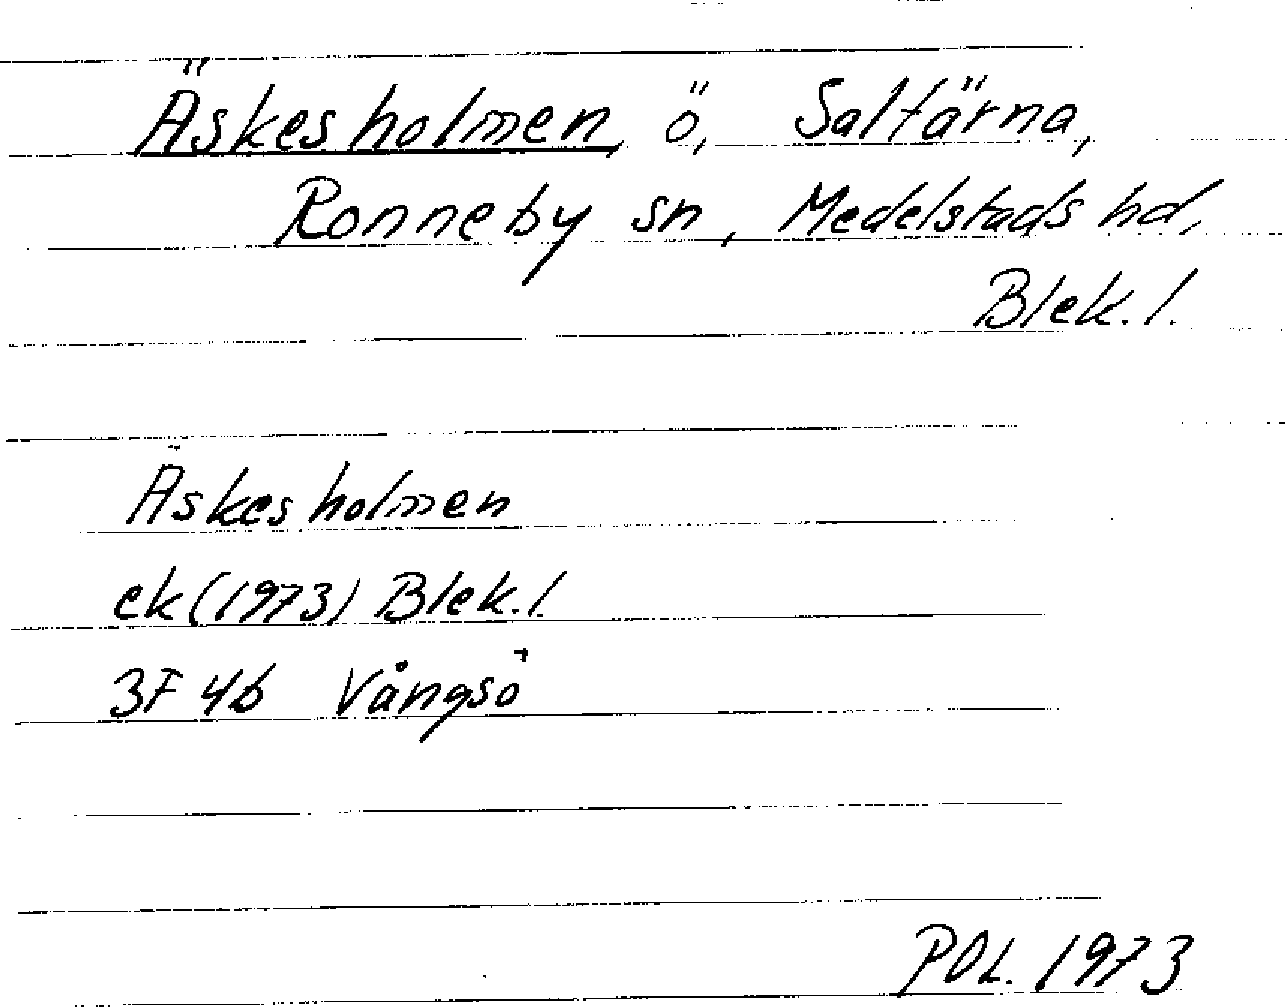 Äskesholmen, ö, Saltärna,
Ronneby sn, Medelstads hd,
Blek. l.
Äskesholmen
ek (1973) Blek. l.
3F 4b Vångsö
POL. 1973